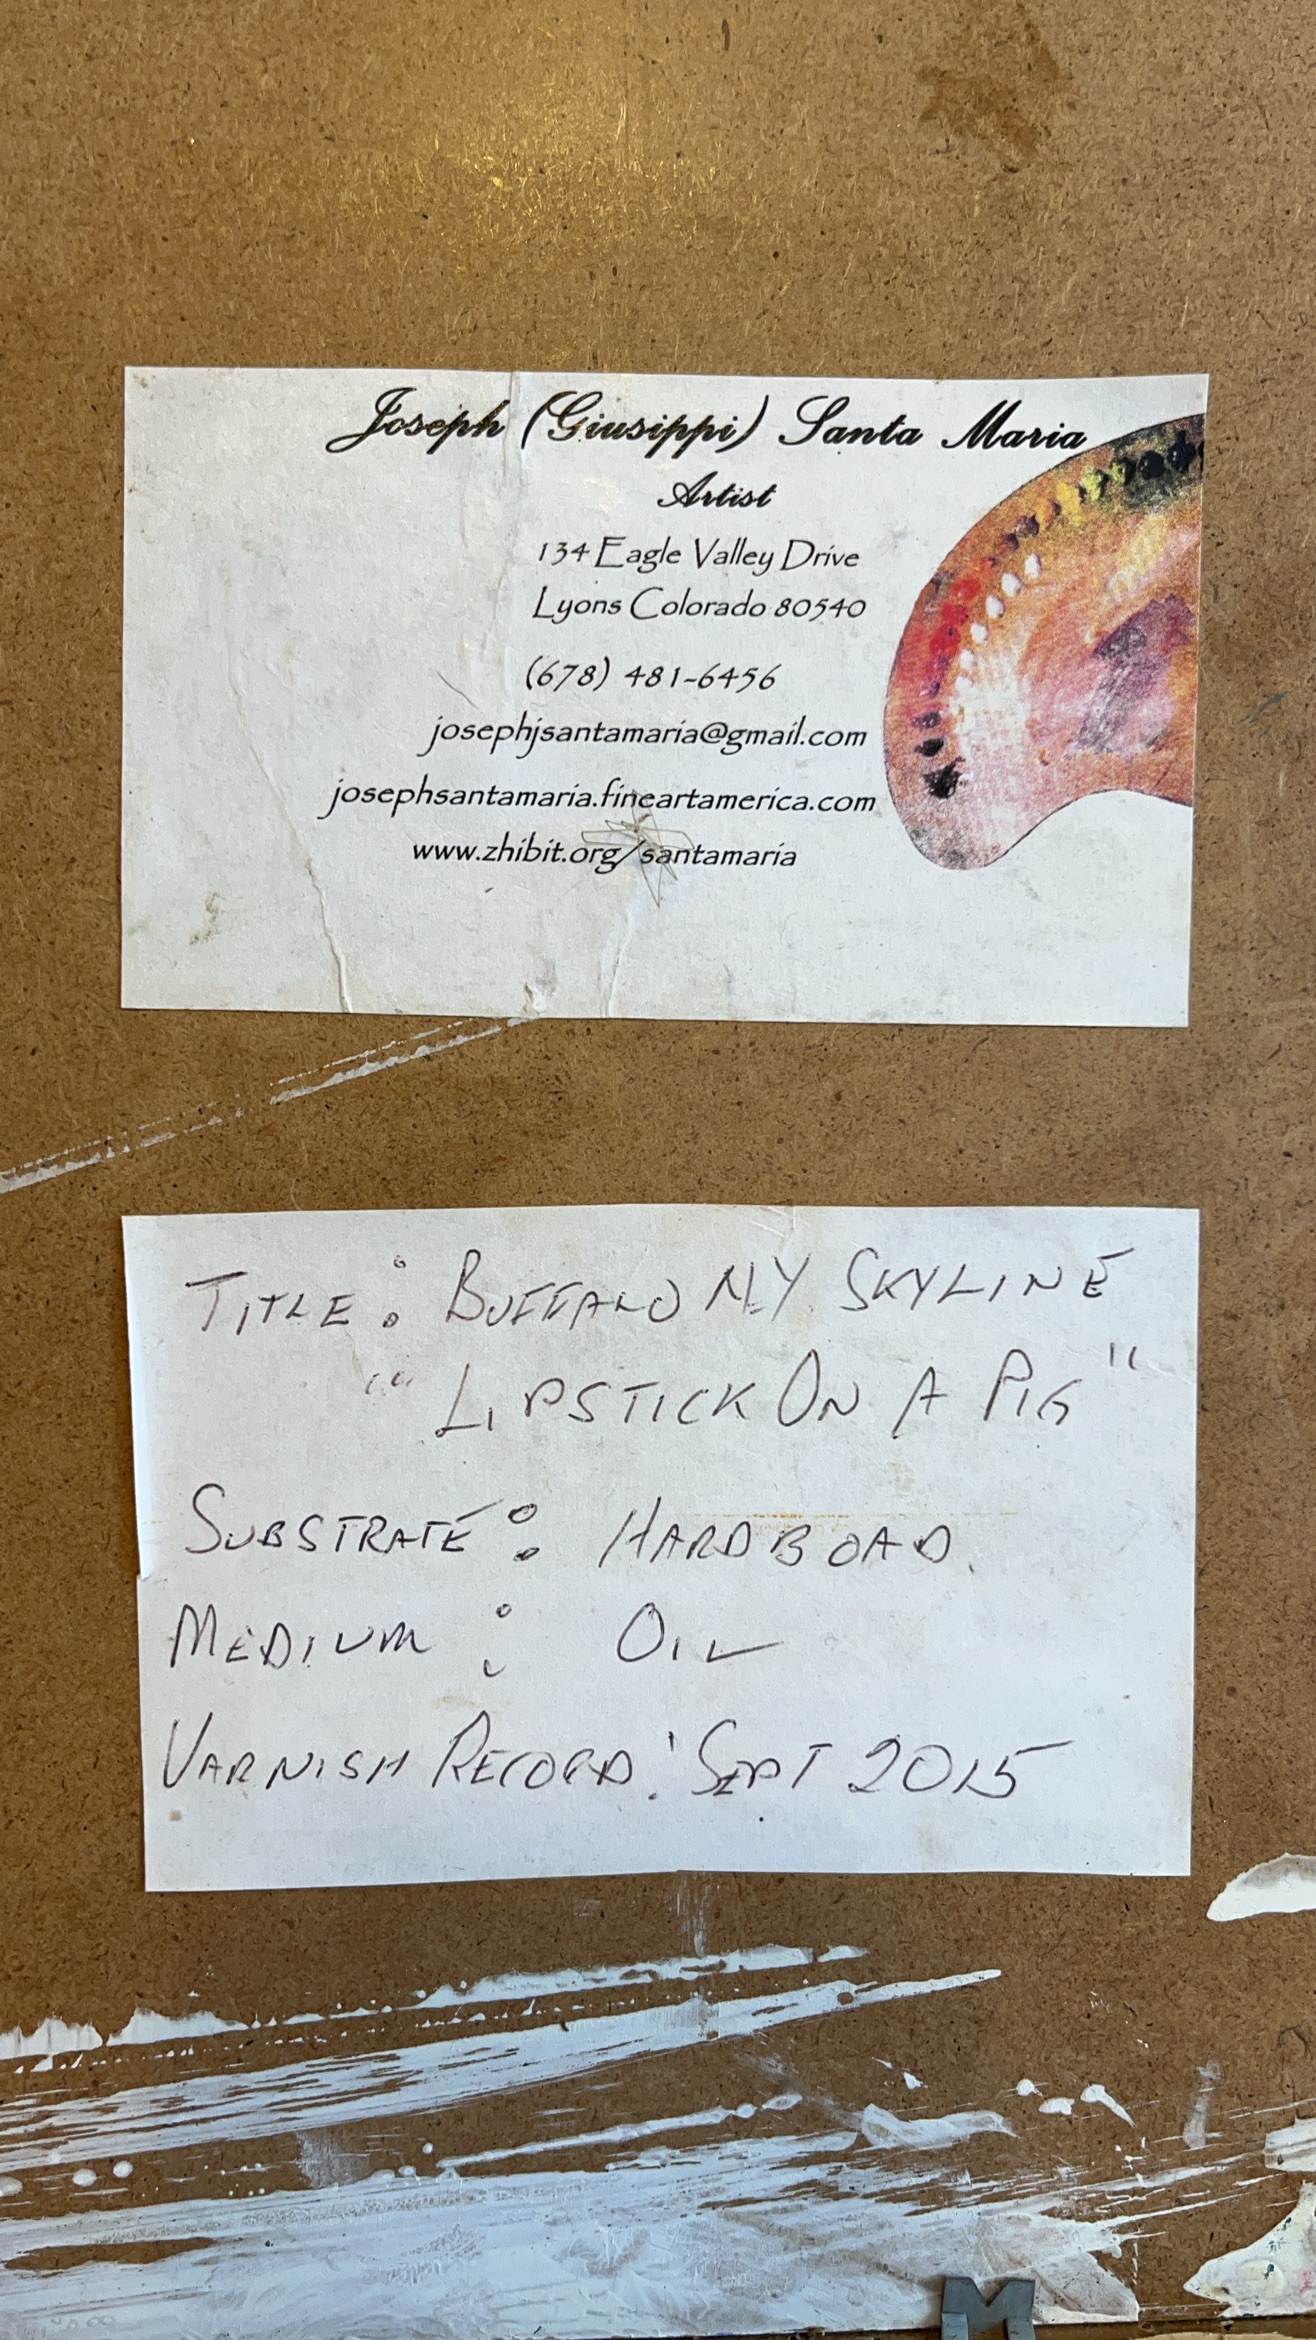 Joseph (Giusippi) Santa Maria
Artist
134 Eagle Valley Drive
Lyons Colorado 80540
(678) 481-6456
josephjsantamaria@gmail.com
josephsantamaria.fineartamerica.com
www.zhibit.org/santamaria
TITLE: BUFFALO NY SKYLINE
"LIPSTICK ON A PIG"
SUBSTRATE: HARDBOAD
MEDIUM: OIL
VARNISH RECORD: SEPT 2015